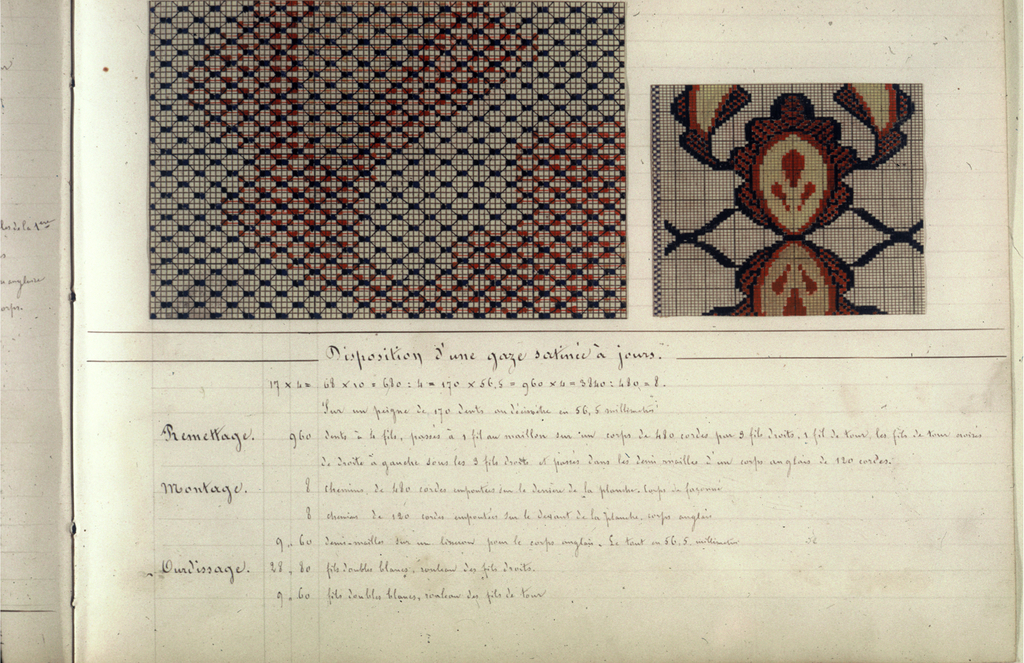 los de la 1ere
s
n anglaise
corps.
Disposition d'une gaze satinée à jours.
17 x 4 = 68 x 10 = 680 : 4 = 170 x 56,5 = 960 x 4 = 3840 : 480 = 8.
Sur un peigne de 170 dents au décimètre en 56,5 millimètres
Remettage. 960 dents à 4 fils, passés à 1 fil au maillon sur un corps de 480 cordes par 3 fils droits, 1 fil de tour, les fils de tour croisés
de droite à gauche sous les 3 fils droits et passés dans les demi mailles d'un corps anglais de 120 cordes.
Montage. 8 chemins de 480 cordes empoutées sur le derrière de la planche. Corps de façonné
8 chemins de 120 cordes empoutées sur le devant de la planche. corps anglais
9,,60 demi-mailles sur un pour le corps anglais. Le tout en 56,5 millimètres
Ourdissage. 28,80 fils doubles blancs, rouleau des fils droits.
9,60 fils doubles blancs, rouleau des fils de tour